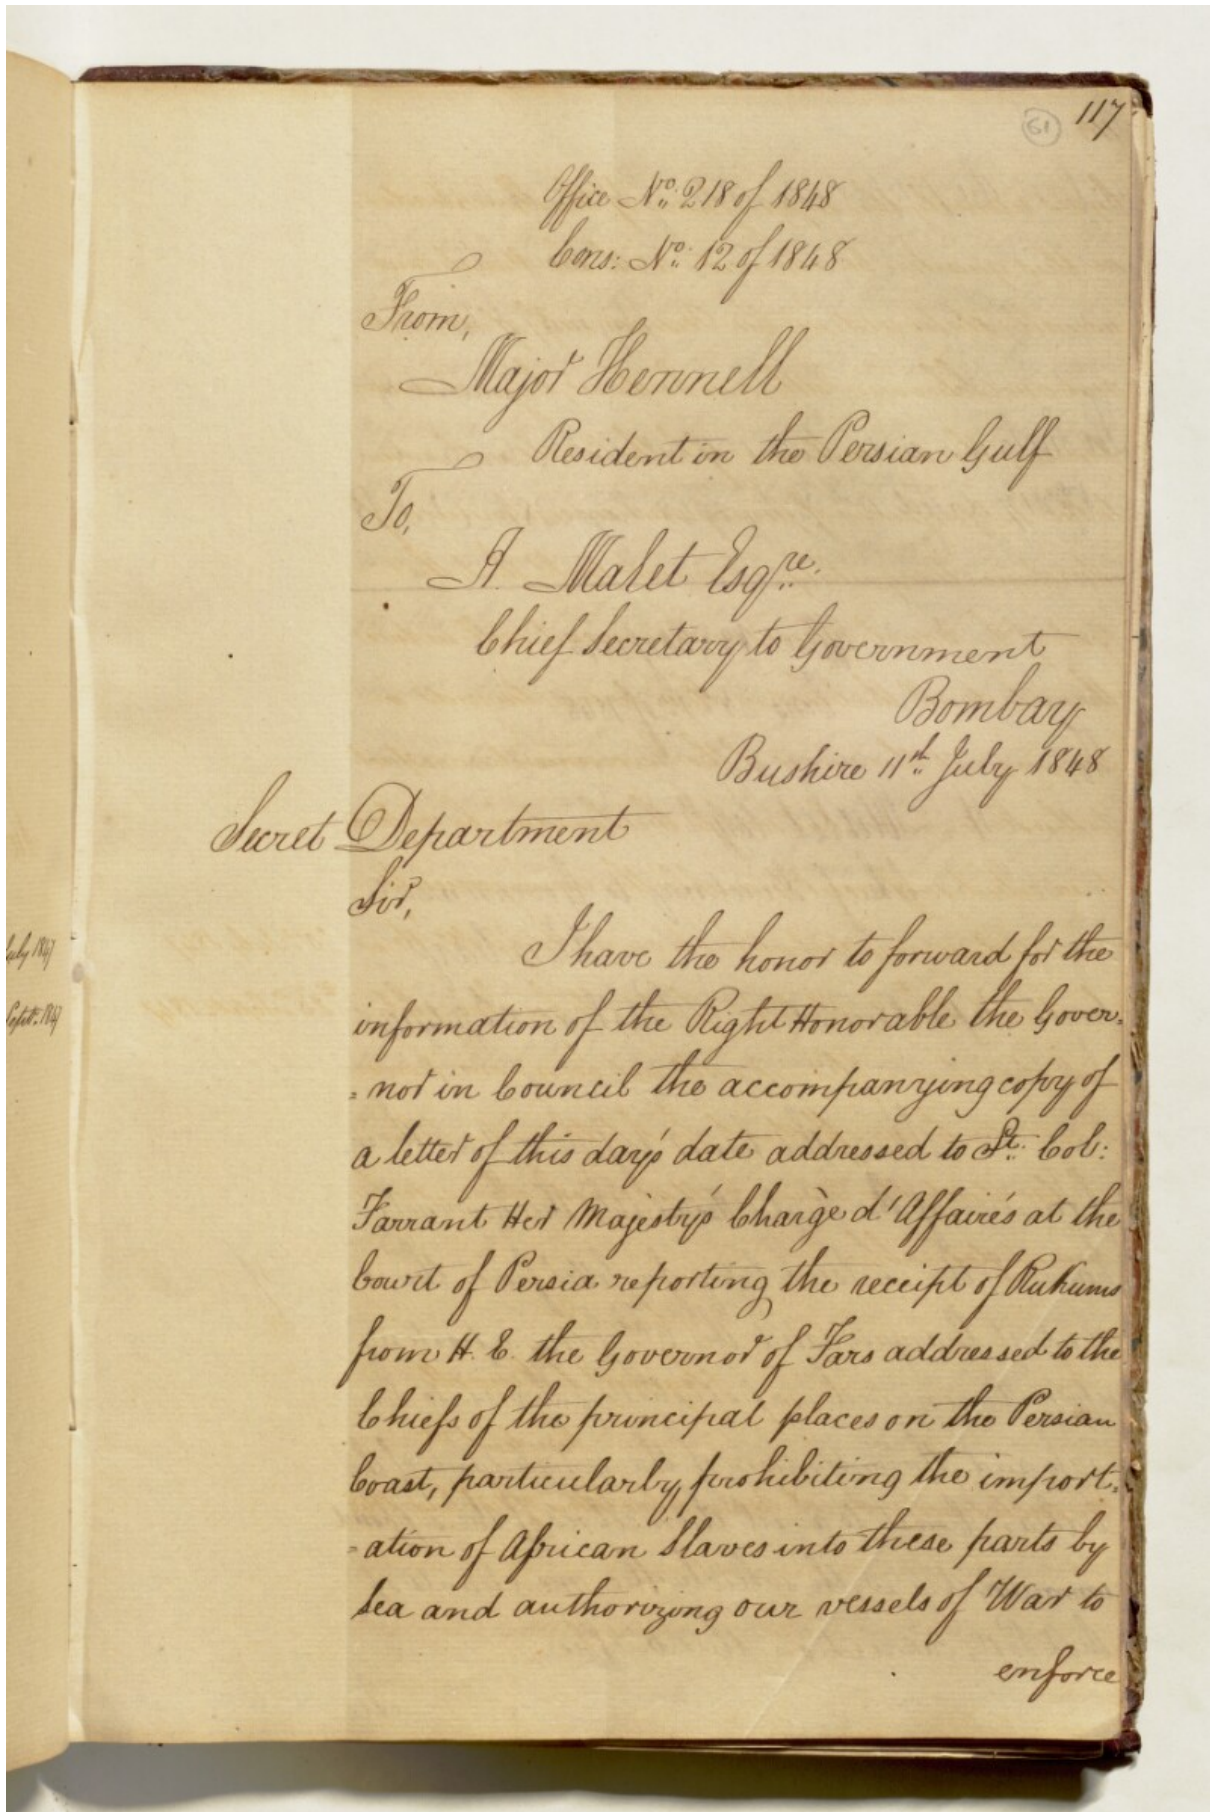 117
61
Office No. 218 of 1848
Cons: No. 12 of 1848
From,
Major Hennell
Resident in the Persian Gulf
To,
A. Malet Esqre.
Chief Secretary to Government
Bombay
Bushire 11th July 1848
Secret Department
Sir,
I have the honor to forward for the
information of the Right Honorable the Gover=
=nor in Council the accompanying copy of
a letter of this day's date addressed to Lt. Col:
Farrant Her Majesty's Chargè d'Affairés at the
Court of Persia reporting the receipt of Rukums
from H. E. the Governor of Fars addressed to the
Chiefs of the principal places on the Persian
Coast, particularly prohibiting the import=
=ation of African Slaves into these parts by
Sea and authorizing our vessels of War to
enforce
July 1847
Septr. 1847